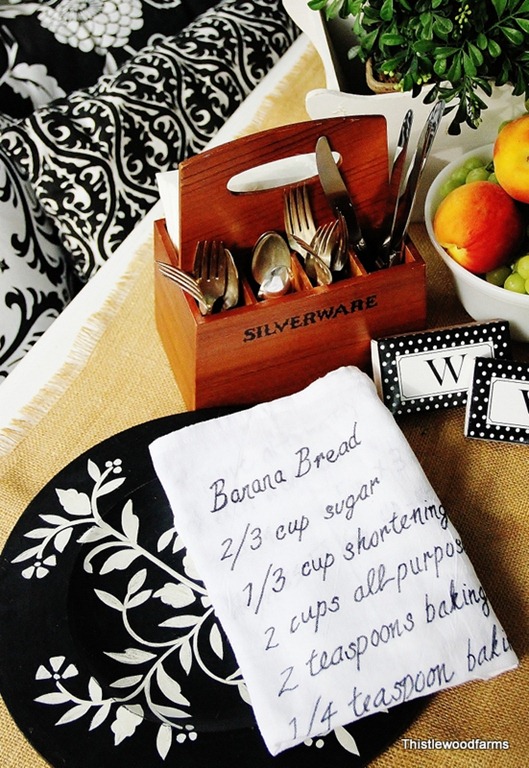 SILVERWARE
W
Banana Bread
2/3 cup sugar
1/3 cup shortening
2 cups all-purpos
2 teaspoons baking
1/4 teaspoon baki
Thistlewoodfarms